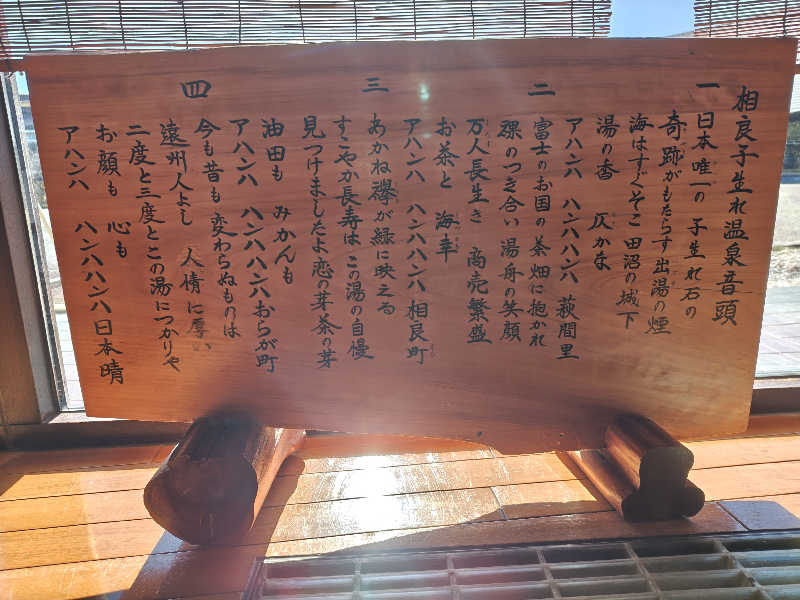 相良子生れ温泉音頭
一
日本唯一の 子生れ石の
奇跡がもたらす出湯の煙
海はすぐそこ 田沼の城下
湯の香 仄かな
アハンハ ハンハンハ 萩間里
二
富士のお国の 茶畑に抱かれ
裸のつき合い 湯舟の笑顔
万人長生き 商売繁盛
お茶と 海幸
アハンハ ハンハハンハ 相良町
三
あかね襷が緑に映える
すこやか長寿は この湯の自慢
見つけましたよ 恋の芽 茶の芽
油田も みかんも
アハンハ ハンハハンハおらが町
四
今も昔も 変わらぬものは
遠州人よし 人情に厚い
二度と三度とこの湯につかりや
お顔も 心も
アハンハ ハンハハンハ日本晴